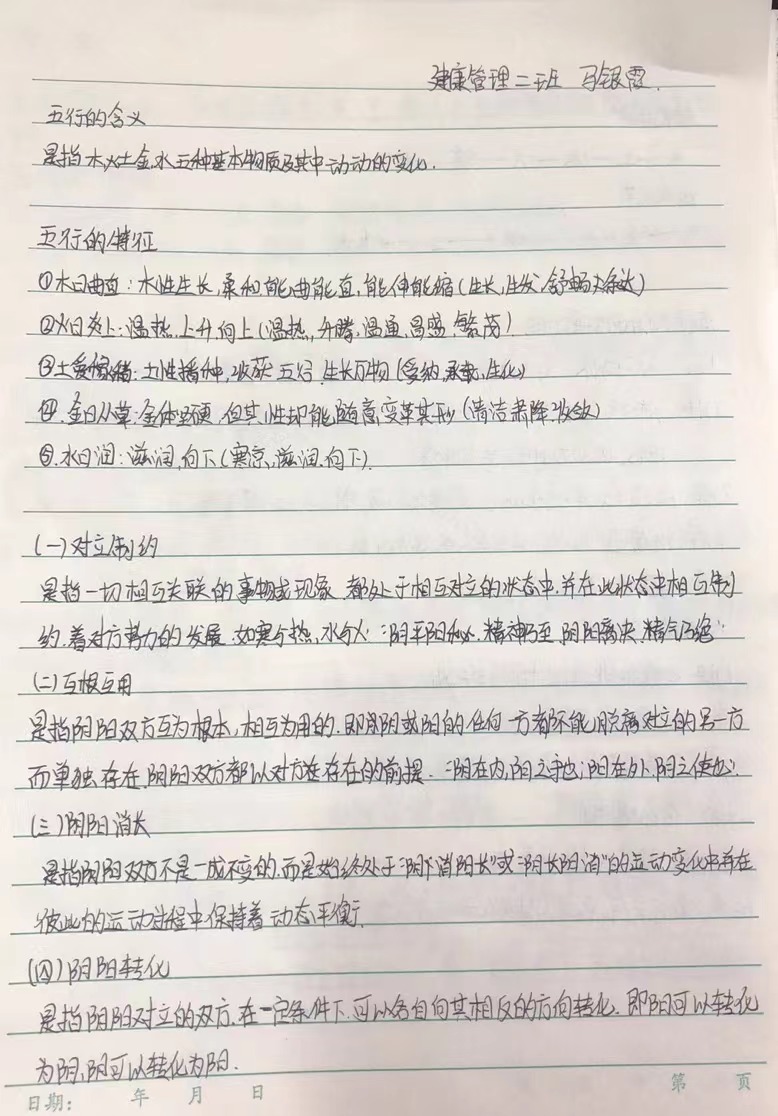 健康管理二班 马银霞.
五行的含义
是指木火土金水五种基本物质及其中动动的变化.
五行的特征
①木曰曲直:木性生长,柔和,能曲能直,能伸能缩(生长,生发,舒畅,条达)
②火曰炎上:温热,上升,向上(温热,升腾,温通,昌盛,繁茂)
③土爰稼穑:土性播种,收获五谷,生长万物(受纳,承载,生化)
④.金曰从革:金体坚硬,但其性却能随意变革其形(清洁肃降,收敛)
⑤.水曰润:滋润,向下(寒凉,滋润,向下).
(一)对立制约
是指一切相互关联的事物或现象,都处于相互对立的状态中,并在此状态中相互制
约,着对方势力的发展.如寒与热,水与火“阴平阳秘,精神乃至,阴阳离决,精气乃绝”
(二)互根互用
是指阴阳双方互为根本,相互为用的.即阴或阳的任何一方都不能脱离对立的另一方
而单独存在,阴阳双方都以对方在存在的前提.“阴在内,阳之守也;阳在外,阴之使也”.
(三)阴阳消长
是指阴阳双方不是一成不变的,而是始终处于“阴消阳长”或“阴长阳消”的运动变化中并在
彼此的运动过程中保持着动态平衡.
(四)阴阳转化
是指阴阳对立的双方,在一定条件下,可以各自向其相反的方向转化.即阳可以转化
为阴,阴可以转化为阳.
日期: 年 月 日 第 页